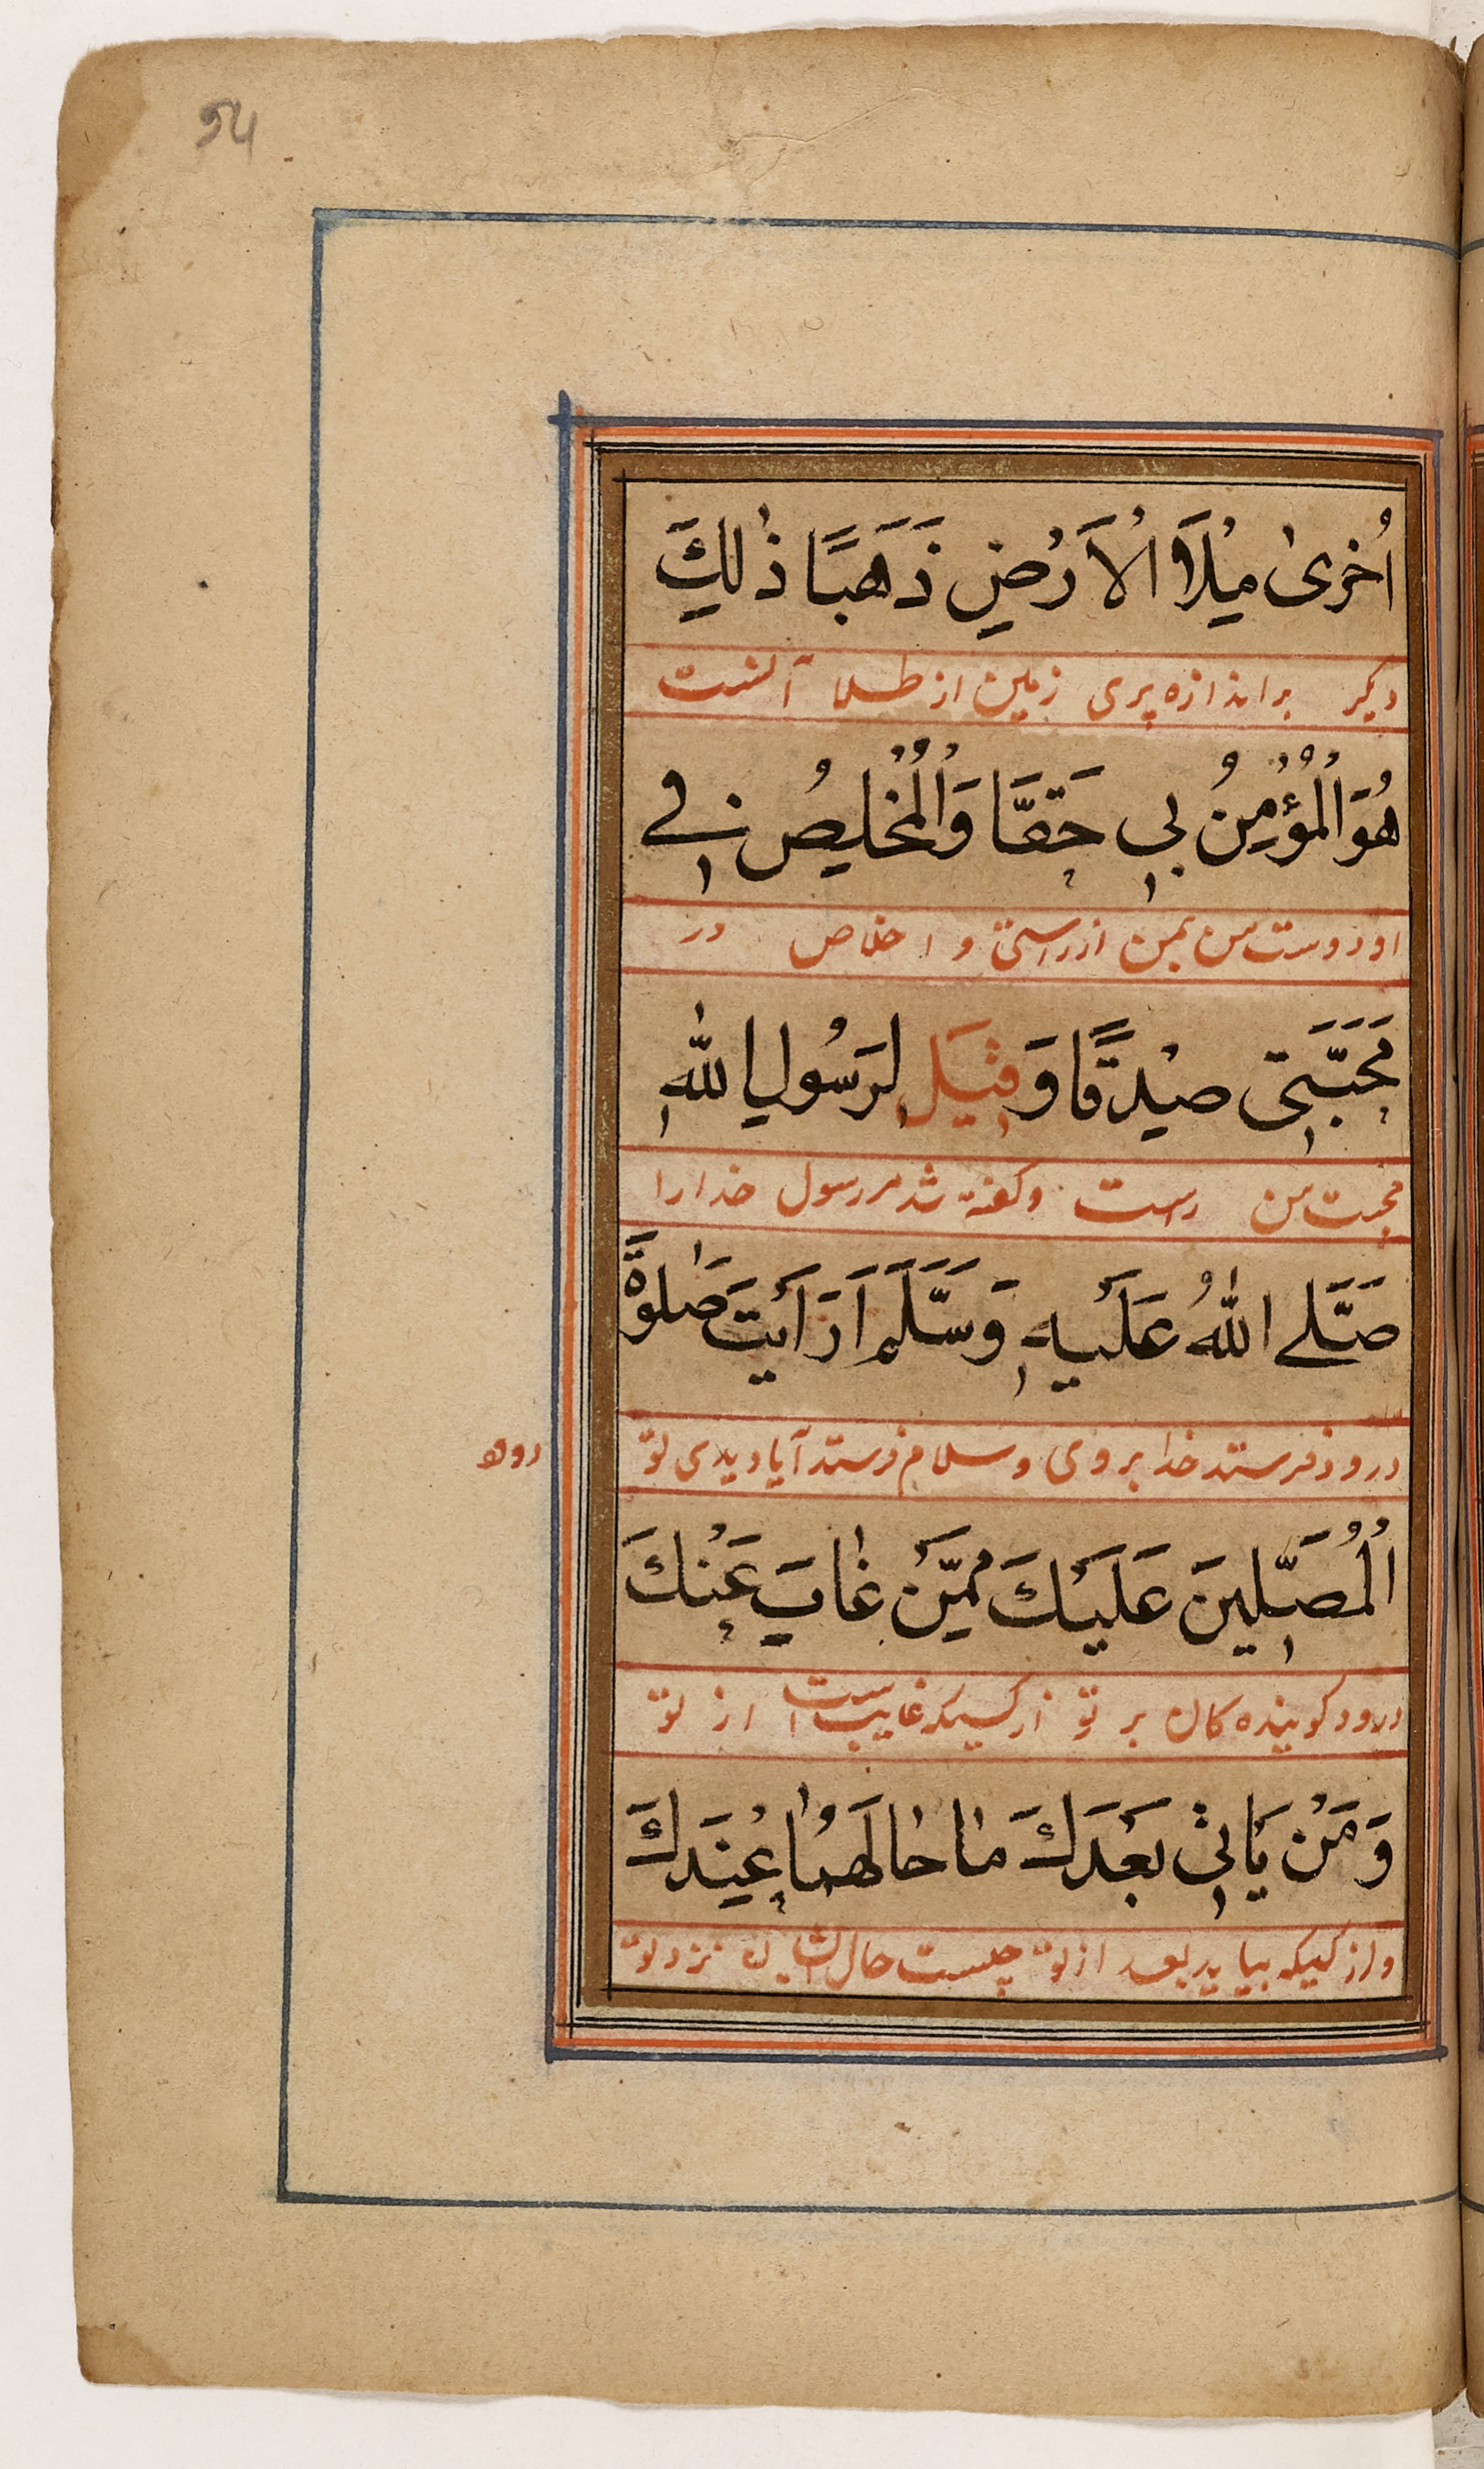 54
اُخْرىٰ مِلْاَ الْاَرْضِ ذَهَبًا ذٰلِكَ
دیکر براندازه پری زمین از طلا آنست
هُوَ الْمُؤْمِنُ بِي حَقًّا وَالْمُخْلِصُ فِے
او دوست من بمن از راستی و اخلاص در
مَحَبَّتِي صِدْقًا وَقِيْلَ لِرَسُولِ اللّٰهِ
محبت من راست وکفته شد مر رسول خدارا
صَلَّے اللّٰهُ عَلَيْهِ وَسَلَّمَ اَرَاَيْتَ صَلٰوةَ
درود فرستد خدا بروی وسلام فرستد آیا دیدی تو
درود
الْمُصَلِّينَ عَلَيْكَ مِمَّنْ غَابَ عَنْكَ
درود کوینده کان بر تو از کسیکه غایب است از تو
وَمَنْ يَاْتِي بَعْدَكَ مَا حَالُهُمَا عِنْدَكَ
واز کسیکه بیاید بعد از تو چیست حال ایشان نزد تو